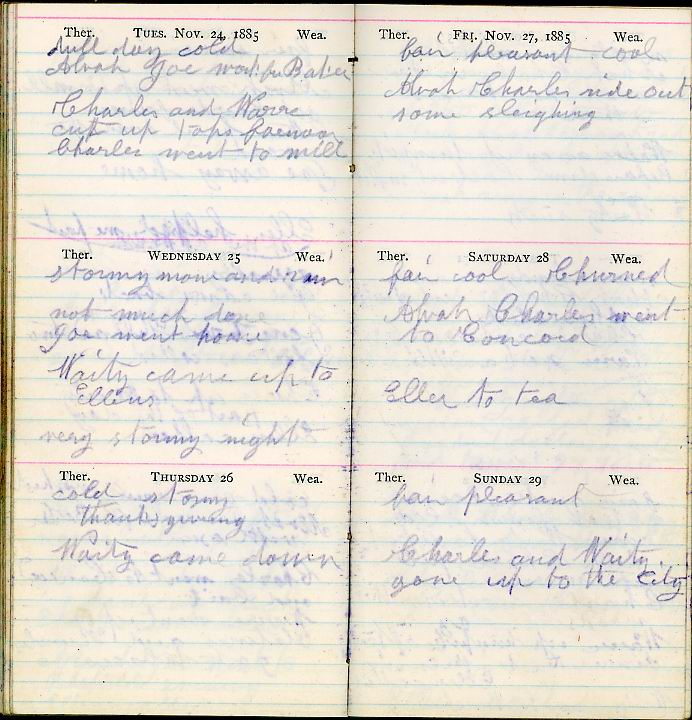 Ther. TUES. NOV. 24, 1885 Wea.
dull day cold
Alvah Joe work for
Charles and
cut up tops forenoon
Charles went to mill
Ther. WEDNESDAY 25 Wea.
stormy snow and rain
not much done
Joe went home
Waity came up to
Ellens
very stormy night
Ther. THURSDAY 26 Wea.
cold stormy
thanksgiving
Waity came down
Ther. FRI. NOV. 27, 1885 Wea.
fair pleasant cool
Alvah Charles ride out
some sleighing
Ther. SATURDAY 28 Wea.
fair cool Churned
Alvah Charles went
to Concord
Ellen to tea
Ther. SUNDAY 29 Wea.
fair pleasant
Charles and Waity
gone up to the City